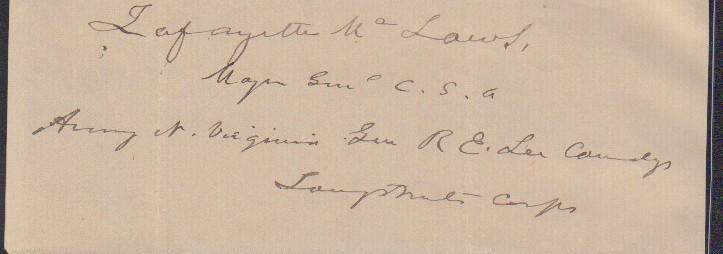 Lafayette McLaws,
Major Genl C. S. A
Army N. Virginia Gen R E. Lee Comdg
Longstreets Corps